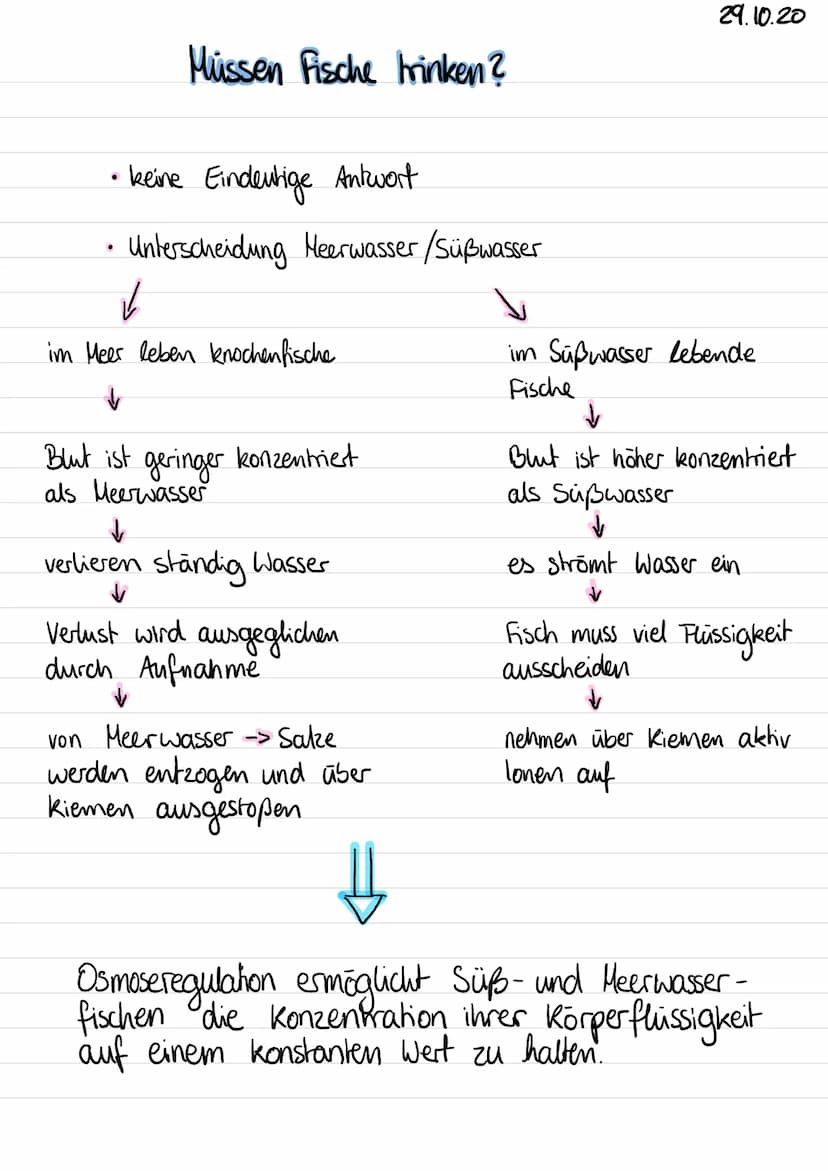 29.10.20
Müssen Fische trinken?
• keine Eindeutige Antwort
• Unterscheidung Meerwasser/Süßwasser
im Meer leben Knochenfische
Blut ist geringer konzentriert
als Meerwasser
verlieren ständig Wasser
Verlust wird ausgeglichen
durch Aufnahme
von Meerwasser -> Salze
werden entzogen und über
Kiemen ausgestoßen
im Süßwasser lebende
Fische
Blut ist höher konzentriert
als Süßwasser
es strömt Wasser ein
Fisch muss viel Flüssigkeit
ausscheiden
nehmen über Kiemen aktiv
Ionen auf
Osmoseregulation ermöglicht Süß- und Meerwasser-
fischen die Konzentration ihrer Körperflüssigkeit
auf einem konstanten Wert zu halten.